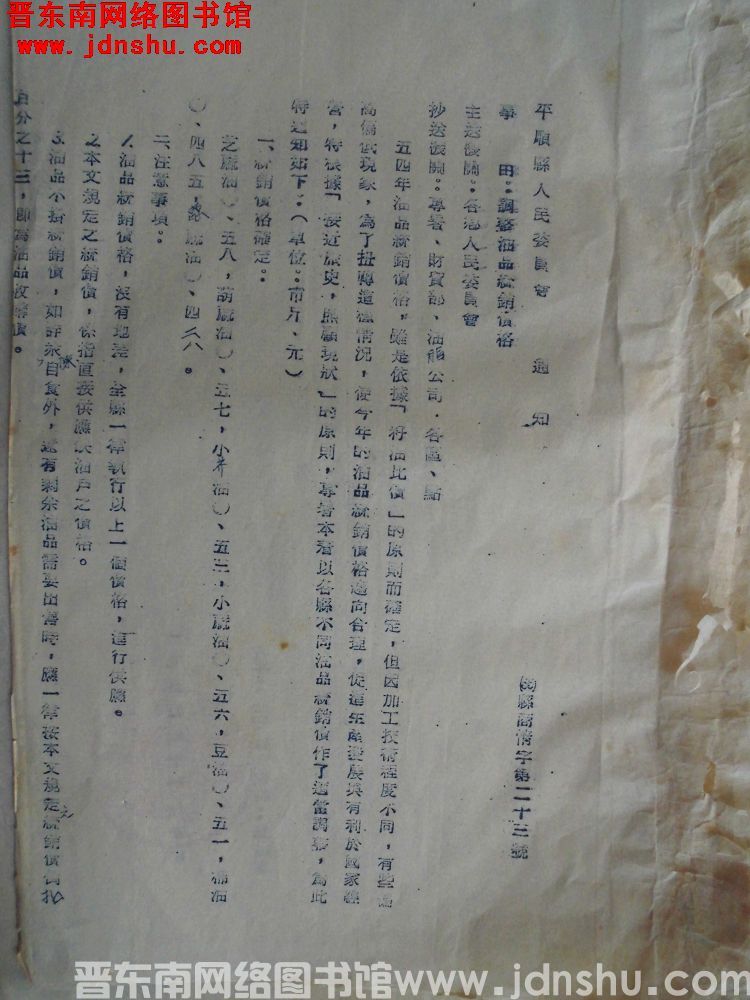 晋东南网络图书馆
www.jdnshu.com
平順縣人民委員會 通知
(55)縣商情字第二十三號
事由：調整油品統銷價格
主送機關：各鄉人民委員會
抄送機關：專署、財貿部、油脂公司·各區、點
五四年油品統銷價格，雖是依據「籽油比價」的原則而確定，但因加工技術程度不同，有些
高偏低現象，為了扭轉這種情況，使今年的油品統銷價格趨向合理，促進生產發展與有利於國家經
營，特根據「接近歷史，照顧現狀」的原則，專署本着以各縣不同油品統銷價作了適當調整，為此
特通知如下：（單位：市斤、元）
一、統銷價格確定：
芝蔴油〇、五八，葫蔴油〇、五七，小芥油〇、五三，小蔴油〇、五六，豆油〇、五一，棉油
〇、四八五，蔴油〇、四六八。
二、注意事項：
1、油品統銷價格，沒有地差，全縣一律執行以上一個價格，進行供應。
2、本文規定之統銷價，係指直接供應食油戶之價格。
3、油品不掛統銷價，如群衆自食外，還有剩余油品需要出售時，應一律按本文規定之統銷價倒扣
百分之十三，即為油品收購價。
晋东南网络图书馆www.jdnshu.com